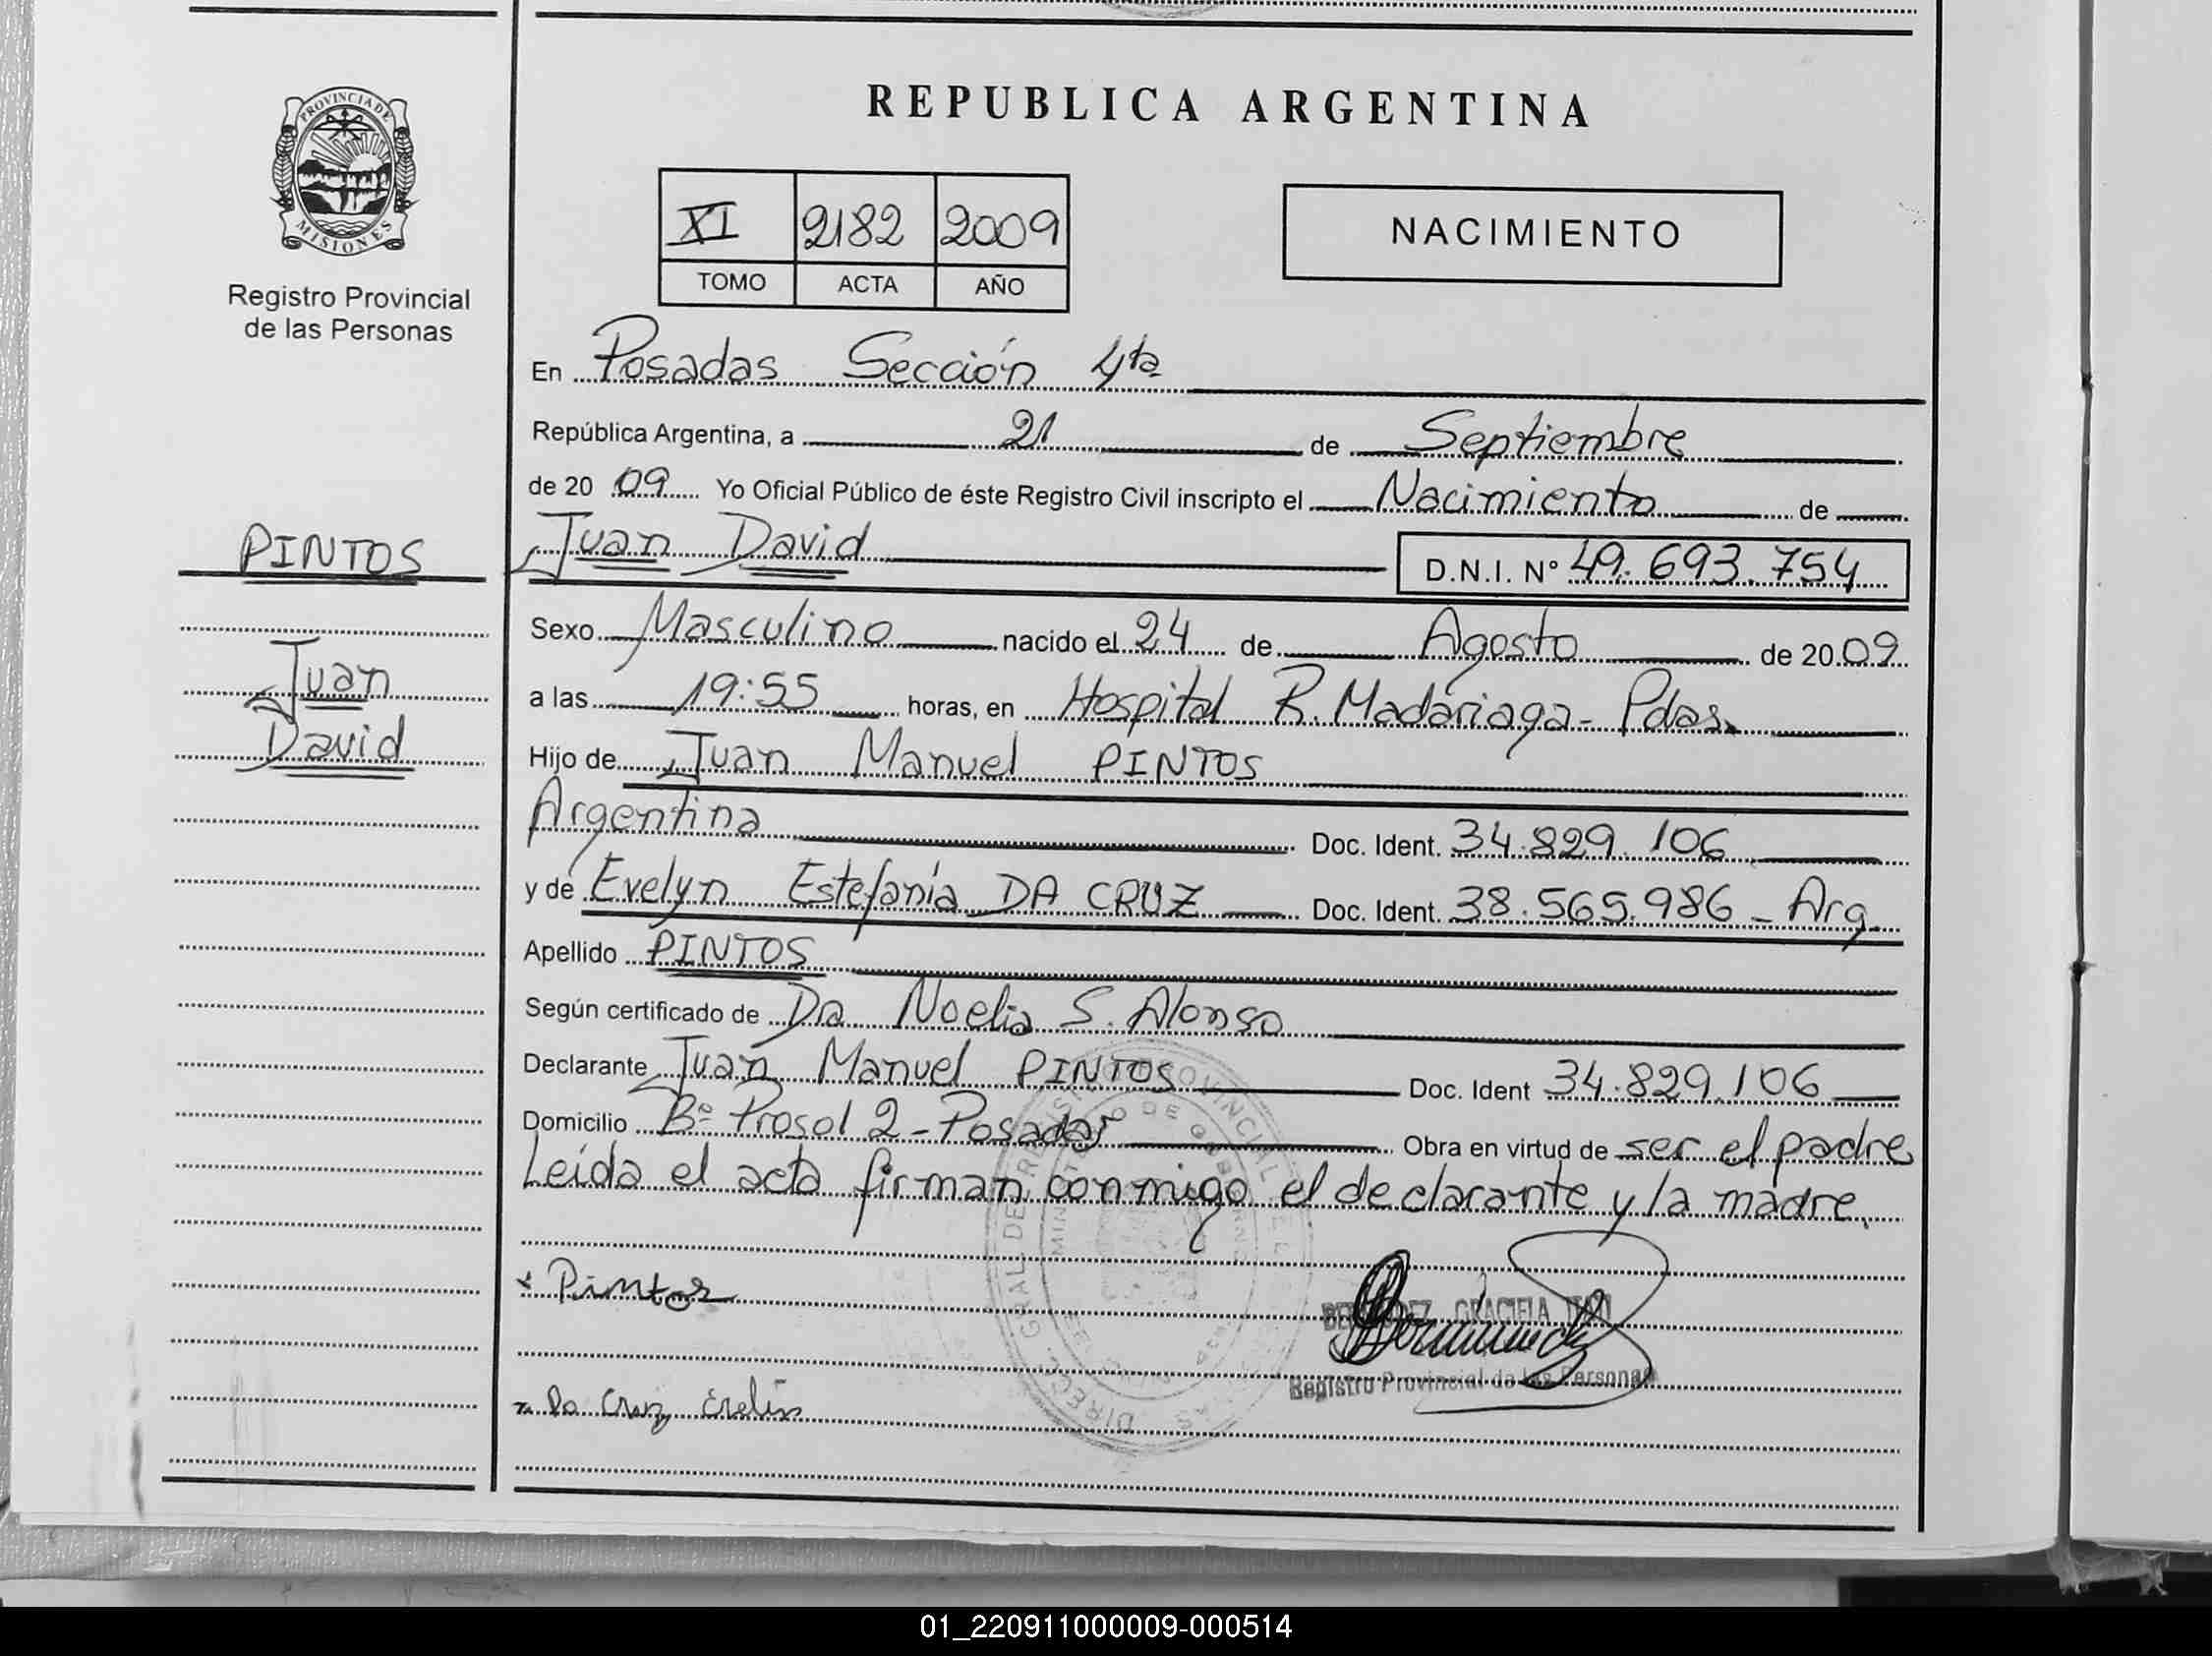 PROVINCIA DE
MISIONES
Registro Provincial
de las Personas
PINTOS
Juan
David
REPUBLICA ARGENTINA
XI 2182 2009
TOMO ACTA AÑO
NACIMIENTO
En Posadas Sección 4ta
República Argentina, a 21 de Septiembre
de 20 09 Yo Oficial Público de éste Registro Civil inscripto el Nacimiento de
Juan David D.N.I. N° 49.693.754
Sexo Masculino nacido el 24 de Agosto de 20 09
a las 19:55 horas, en Hospital R. Madariaga - Pdas.
Hijo de Juan Manuel PINTOS
Argentina Doc. Ident. 34.829.106
y de Evelyn Estefanía DA CRUZ Doc. Ident. 38.565.986 - Arg.
Apellido PINTOS
Según certificado de Dra Noelia S. Alonso
Declarante Juan Manuel PINTOS Doc. Ident 34.829.106
Domicilio B° Prosol 2 - Posadas Obra en virtud de ser el padre
Leída el acta firman conmigo el declarante y la madre.
Pintos
GRACIELA
Registro Provincial de las Personas
Da Cruz
01_220911000009-000514